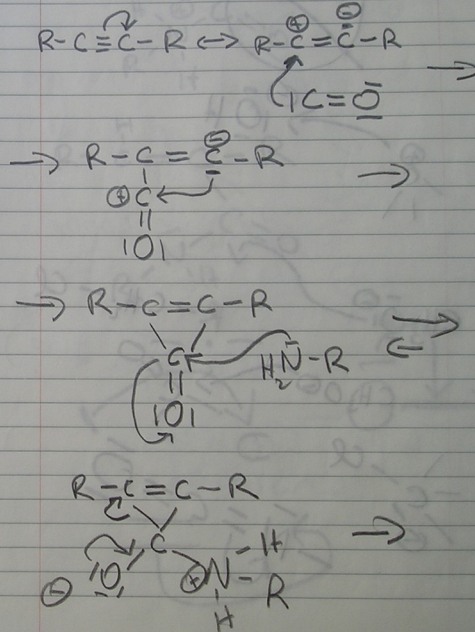 R-C≡C-R ↔ R-C⊕=C⊖-R
|C=O
→
→ R-C=C⊖-R
⊕C
→
||
|O|
→ R-C=C-R
C
H₂N-R
⇄
||
|O|
R-C=C-R
C
→
⊖ |O| ⊕N-H
R
H